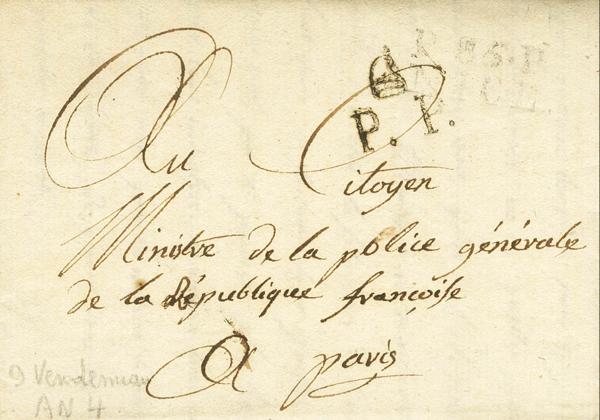 P. P.
Au Citoyen
Ministre de la police générale
de la République françoise
A paris
9 Vendemiair
AN 4